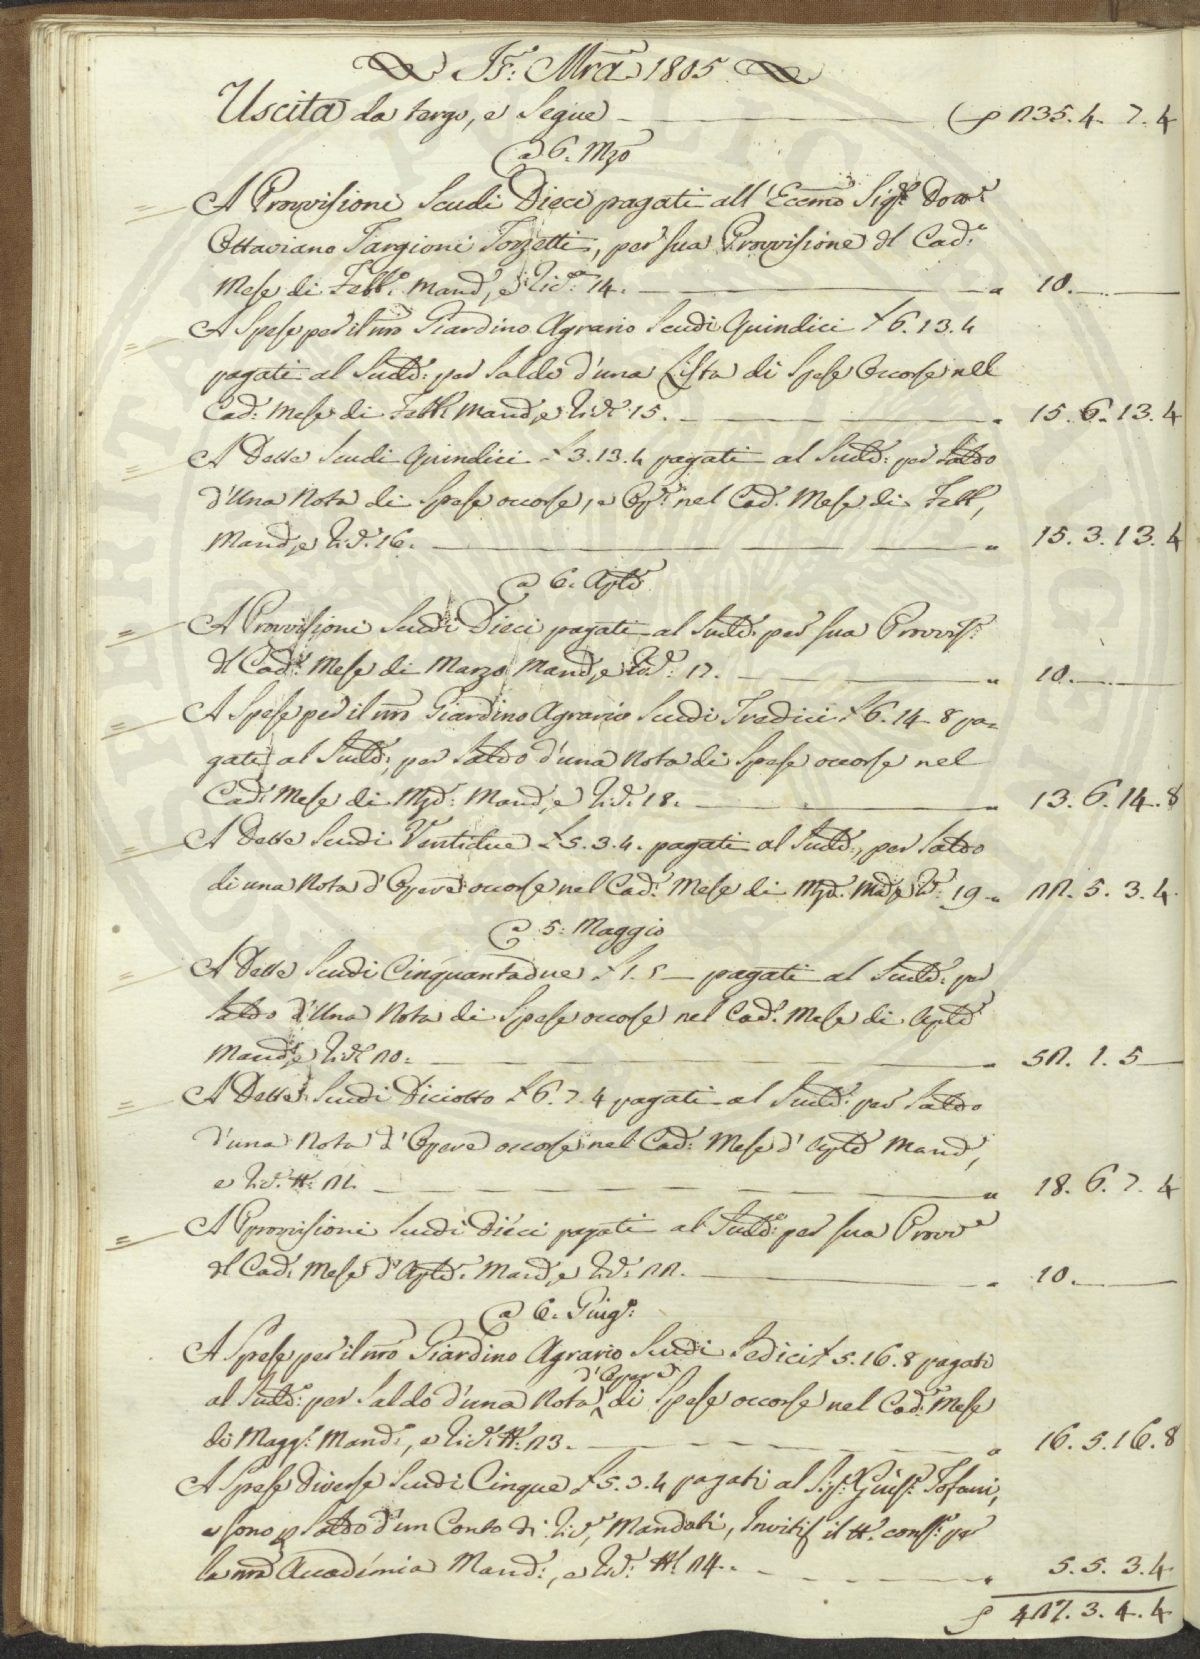 JS: Mra 1805
Uscita da tergo, e Segue — 235. 4. 7. 4
a 6. Mzo
A Provvisioni Scudi Dieci pagati all' Eccmo Sigr. Dotre
Ottaviano Targioni Tozzetti, per sua Provvisione del Cado
Mese di Febb: Mand, e Rica 14. — " 10. —
A Spese per il nro Giardino Agrario Scudi Quindici £ 6. 13. 4
pagati al Sudd: per Saldo d'una Lista di Spese Occorse nel
Cad: Mese di Febb: Mand, e Ric: 15. — " 15. 6. 13. 4
A Dette Scudi Quindici £ 3. 13. 4 pagati al Sudd: per Saldo
d'Una Nota di Spese occorse, e nel Cad: Mese di Febb,
Mand, e Ric: 16. — " 15. 3. 13. 4
a 6. Aple
A Provvisioni Scudi Dieci pagati al Sudd: per sua Provvis:
del Cad: Mese di Marzo Mand, e Ric: 17. — " 10. —
A Spese per il nro Giardino Agrario Scudi Tredici £ 6. 14. 8 pa=
gati al Sudd:, per Saldo d'una Nota di Spese occorse nel
Cad: Mese di Mzo: Mand, e Ric: 18. — " 13. 6. 14. 8
A Dette Scudi Ventidue £ 5. 3. 4. pagati al Sudd:, per Saldo
di una Nota d'Opere occorse nel Cad: Mese di Mzo. Md, e Ri: 19 — " 22. 5. 3. 4.
a 5: Maggio
A Dette Scudi Cinquantadue £ 1. 5 — pagati al Sudd: per
Saldo d'Una Nota di Spese occorse nel Cad: Mese di Aple
Mand, e Ric: 20: — " 52. 1. 5 —
A Dette Scudi Diciotto £ 6. 7. 4 pagati al Sudd: per Saldo
d'una Nota d'Opere occorse nel Cad: Mese d'Aple Mand,
e Ric: N: 21. — " 18. 6. 7. 4
A Provvisioni Scudi Dieci pagati al Sudd: per sua Provve
del Cad: Mese d'Aple: Mand, e Ric: 22. — " 10. —
a 6. Giugo:
A Spese per il nro Giardino Agrario Scudi Sedici £ 5. 16. 8 pagati
d'Opere
al Sudd: per Saldo d'una Nota di Spese occorse nel Cad: Mese
di Magg: Mand:, e Ric: N: 23. — " 16. 5. 16. 8
A Spese Diverse Scudi Cinque £ 5. 3. 4 pagati al Sigr: Giuse: Tofani,
e sono p Saldo d'un Conto di Ric:, Mandati, Inviti, per
la nra Accademia Mand:, e Ric: N: 24. — " 5. 5. 3. 4
427. 3. 4. 4